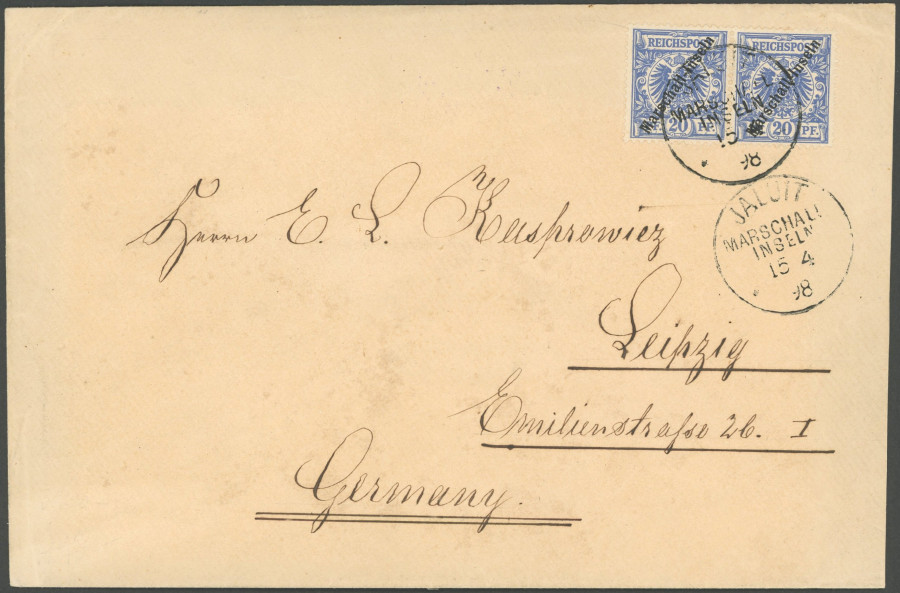 REICHSPOST REICHSPOST
Marschall-Inseln Marschall-Inseln
20 PF. 20 PF.
MARSCHALL
INSELN
15
98
JALUIT
MARSCHALL
INSELN
15 4
98
Herrn E. L. Kasprowicz
Leipzig
Emilienstrasse 26. I
Germany.